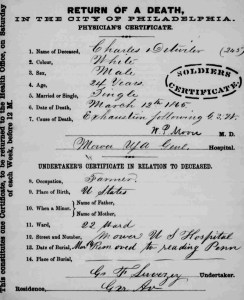 RETURN OF A DEATH,
IN THE CITY OF PHILADELPHIA.
PHYSICIAN'S CERTIFICATE.
1. Name of Deceased, Charles Detwiler (245)
2. Colour, White
3. Sex, Male
4. Age, 24 Years
5. Married or Single, Single
6. Date of Death, March 12th 1865
7. Cause of Death, Exhaustion following
M. D.
Mower USA Genl. Hospital.
SOLDIERS
CERTIFICATE.
UNDERTAKER'S CERTIFICATE IN RELATION TO DECEASED.
8. Occupation, Farmer
9. Place of Birth, U States
10. When a Minor, Name of Father,
Name of Mother,
11. Ward, 22 Ward
12. Street and Number, Mower U S Hospital
13. Date of Burial, Removed to reading Penn
14. Place of Burial,
Undertaker.
Residence,
This constitutes one Certificate, to be returned to the Health Office, on Saturday
of each Week, before 12 M.